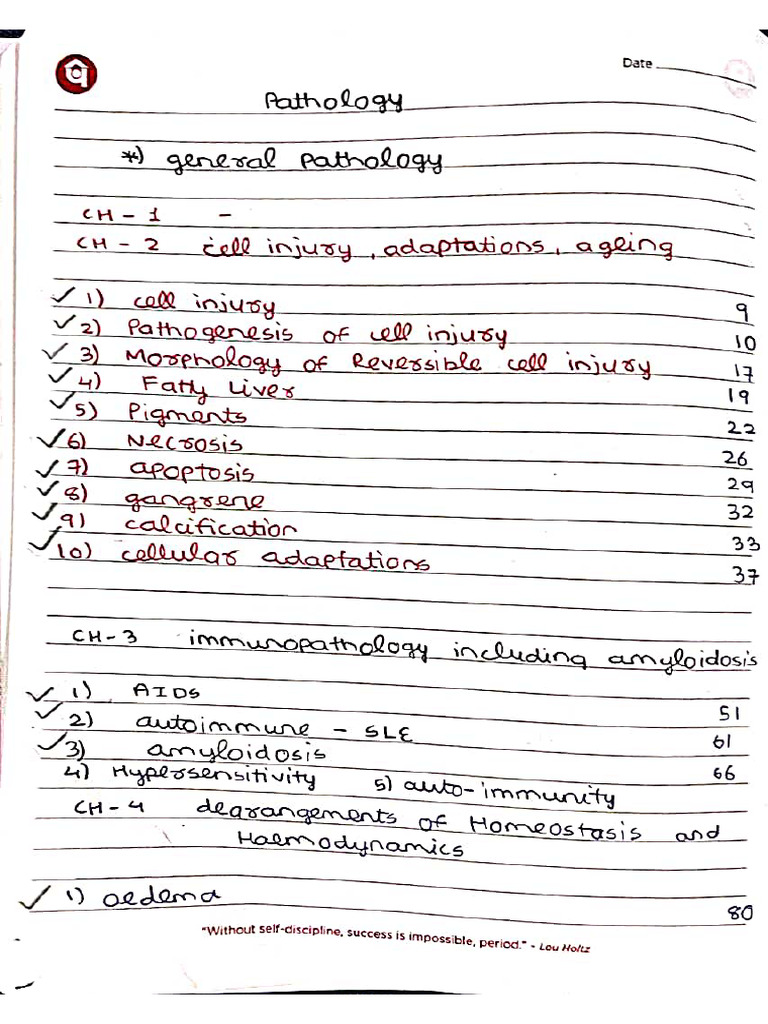 Date
Pathology
*) general pathology
CH - 1 -
CH - 2 cell injury, adaptations, ageing
✓ 1) cell injury 9
✓ 2) Pathogenesis of cell injury 10
✓ 3) Morphology of Reversible cell injury 17
✓ 4) Fatty Liver 19
✓ 5) Pigments 22
✓ 6) Necrosis 26
✓ 7) apoptosis 29
✓ 8) gangrene 32
✓ 9) calcification 33
✓ 10) cellular adaptations 37
CH-3 immunopathology including amyloidosis
✓ 1) AIDS 51
✓ 2) autoimmune - SLE 61
✓ 3) amyloidosis 66
4) Hypersensitivity 5) auto-immunity
CH-4 dearangements of Homeostasis and
Haemodynamics
✓ 1) oedema 80
"Without self-discipline, success is impossible, period." - Lou Holtz